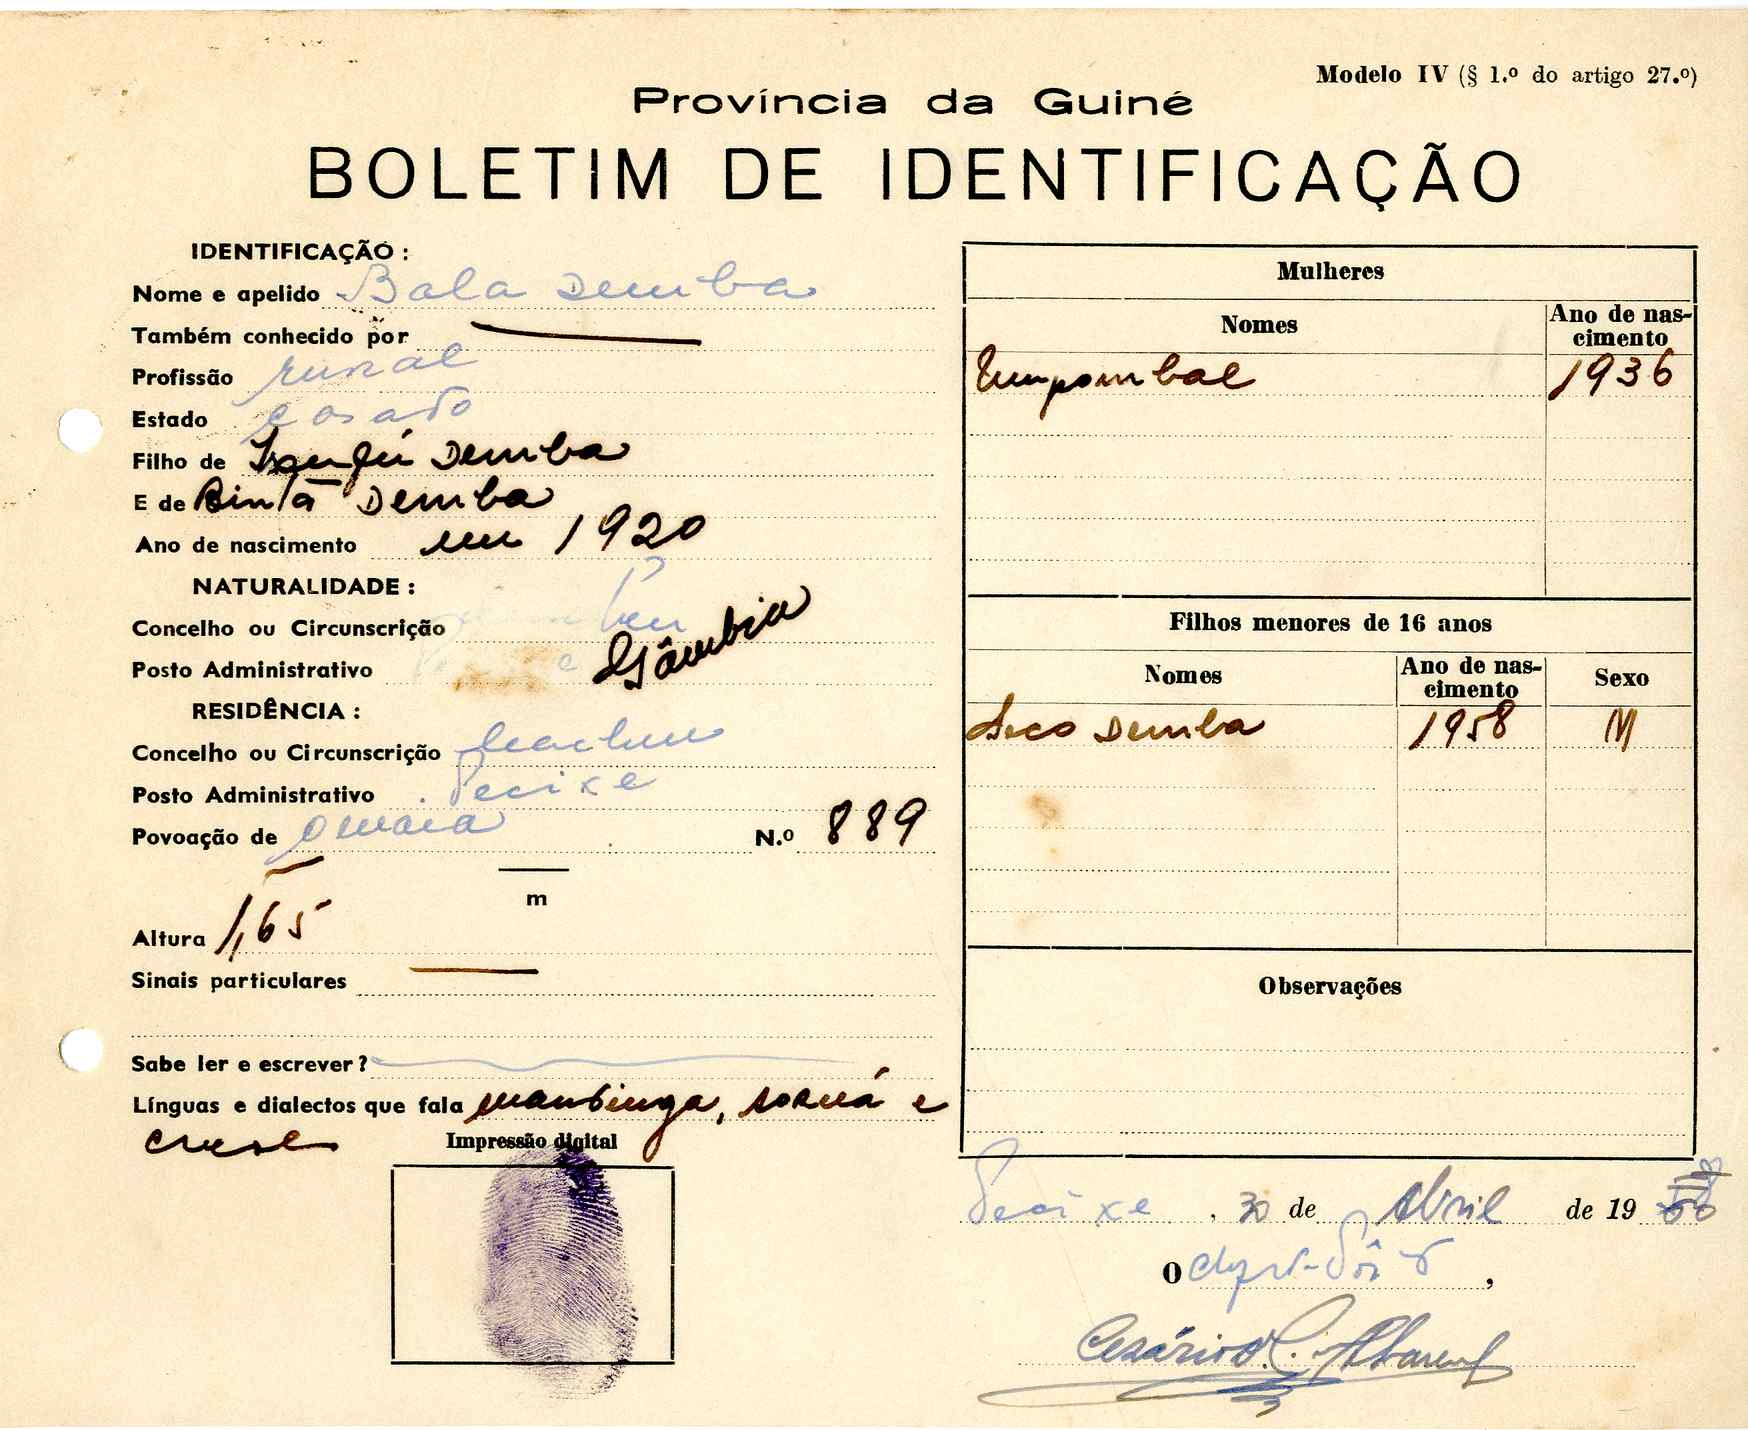 Modelo IV (§ 1.º do artigo 27.º)
Província da Guiné
BOLETIM DE IDENTIFICAÇÃO
IDENTIFICAÇÃO :
Nome e apelido Bala Demba
Também conhecido por
Profissão rural
Estado casado
Filho de Demba
E de Bintã Demba
Ano de nascimento em 1920
NATURALIDADE :
Concelho ou Circunscrição
Posto Administrativo Gâmbia
RESIDÊNCIA :
Concelho ou Circunscrição
Posto Administrativo Pecixe
Povoação de N.º 889
m
Altura 1,65
Sinais particulares
Sabe ler e escrever?
Línguas e dialectos que fala mandinga, e
Impressão digital
Mulheres
Nomes
Ano de nas-
cimento
1936
Filhos menores de 16 anos
Nomes
Ano de nas-
cimento
Sexo
Seco Demba 1958 M
Observações
Pecixe, 30 de Abril de 19
O
Cesário C.